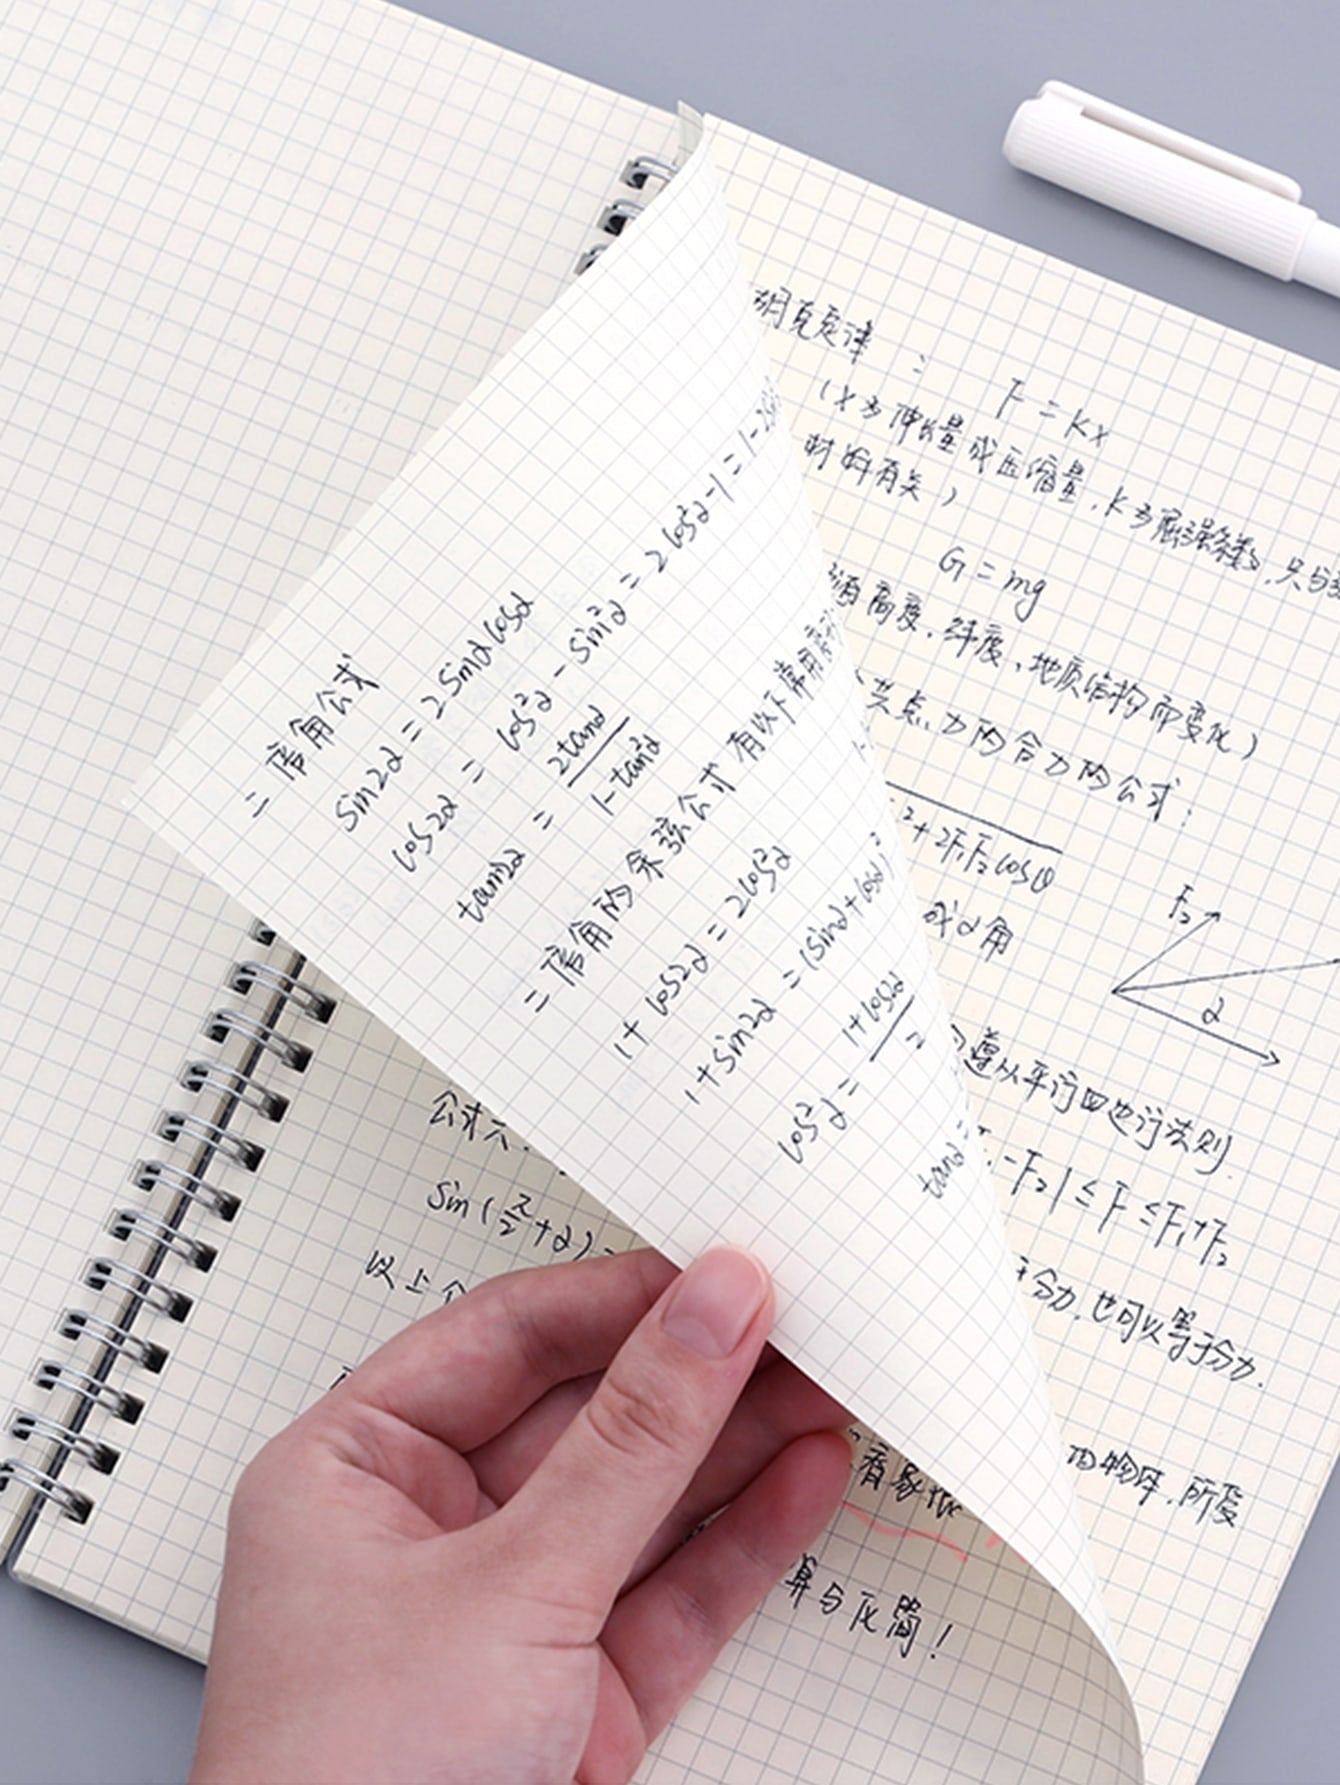 二倍角公式
sin2α = 2sinαcosα
cos2α = cos²α - sin²α = 2cos²α-1 = 1-2
tan2α = 2tanα / 1-tan²α
二倍角的余弦公式有以下常用
1+cos2α = 2cos²α
1+sin2α = (sinα+cosα)²
cos²α = 1+cos2α / 2
tanα =
胡克定律: F=kx
(x为伸长量或压缩量,k为屈强系数,只与
材料有关)
G=mg
高度,纬度,地质结构而变化)
共点力的合力的公式:
²+2F₁F₂cosθ
成α角
F₂
α
遵从平行四边行法则.
-F₂|≤F≤F₁+F₂
于分力,也可以等于分力.
物体,所受
公式六:
sin(π/2+α)
以上
看象限
算与化简!